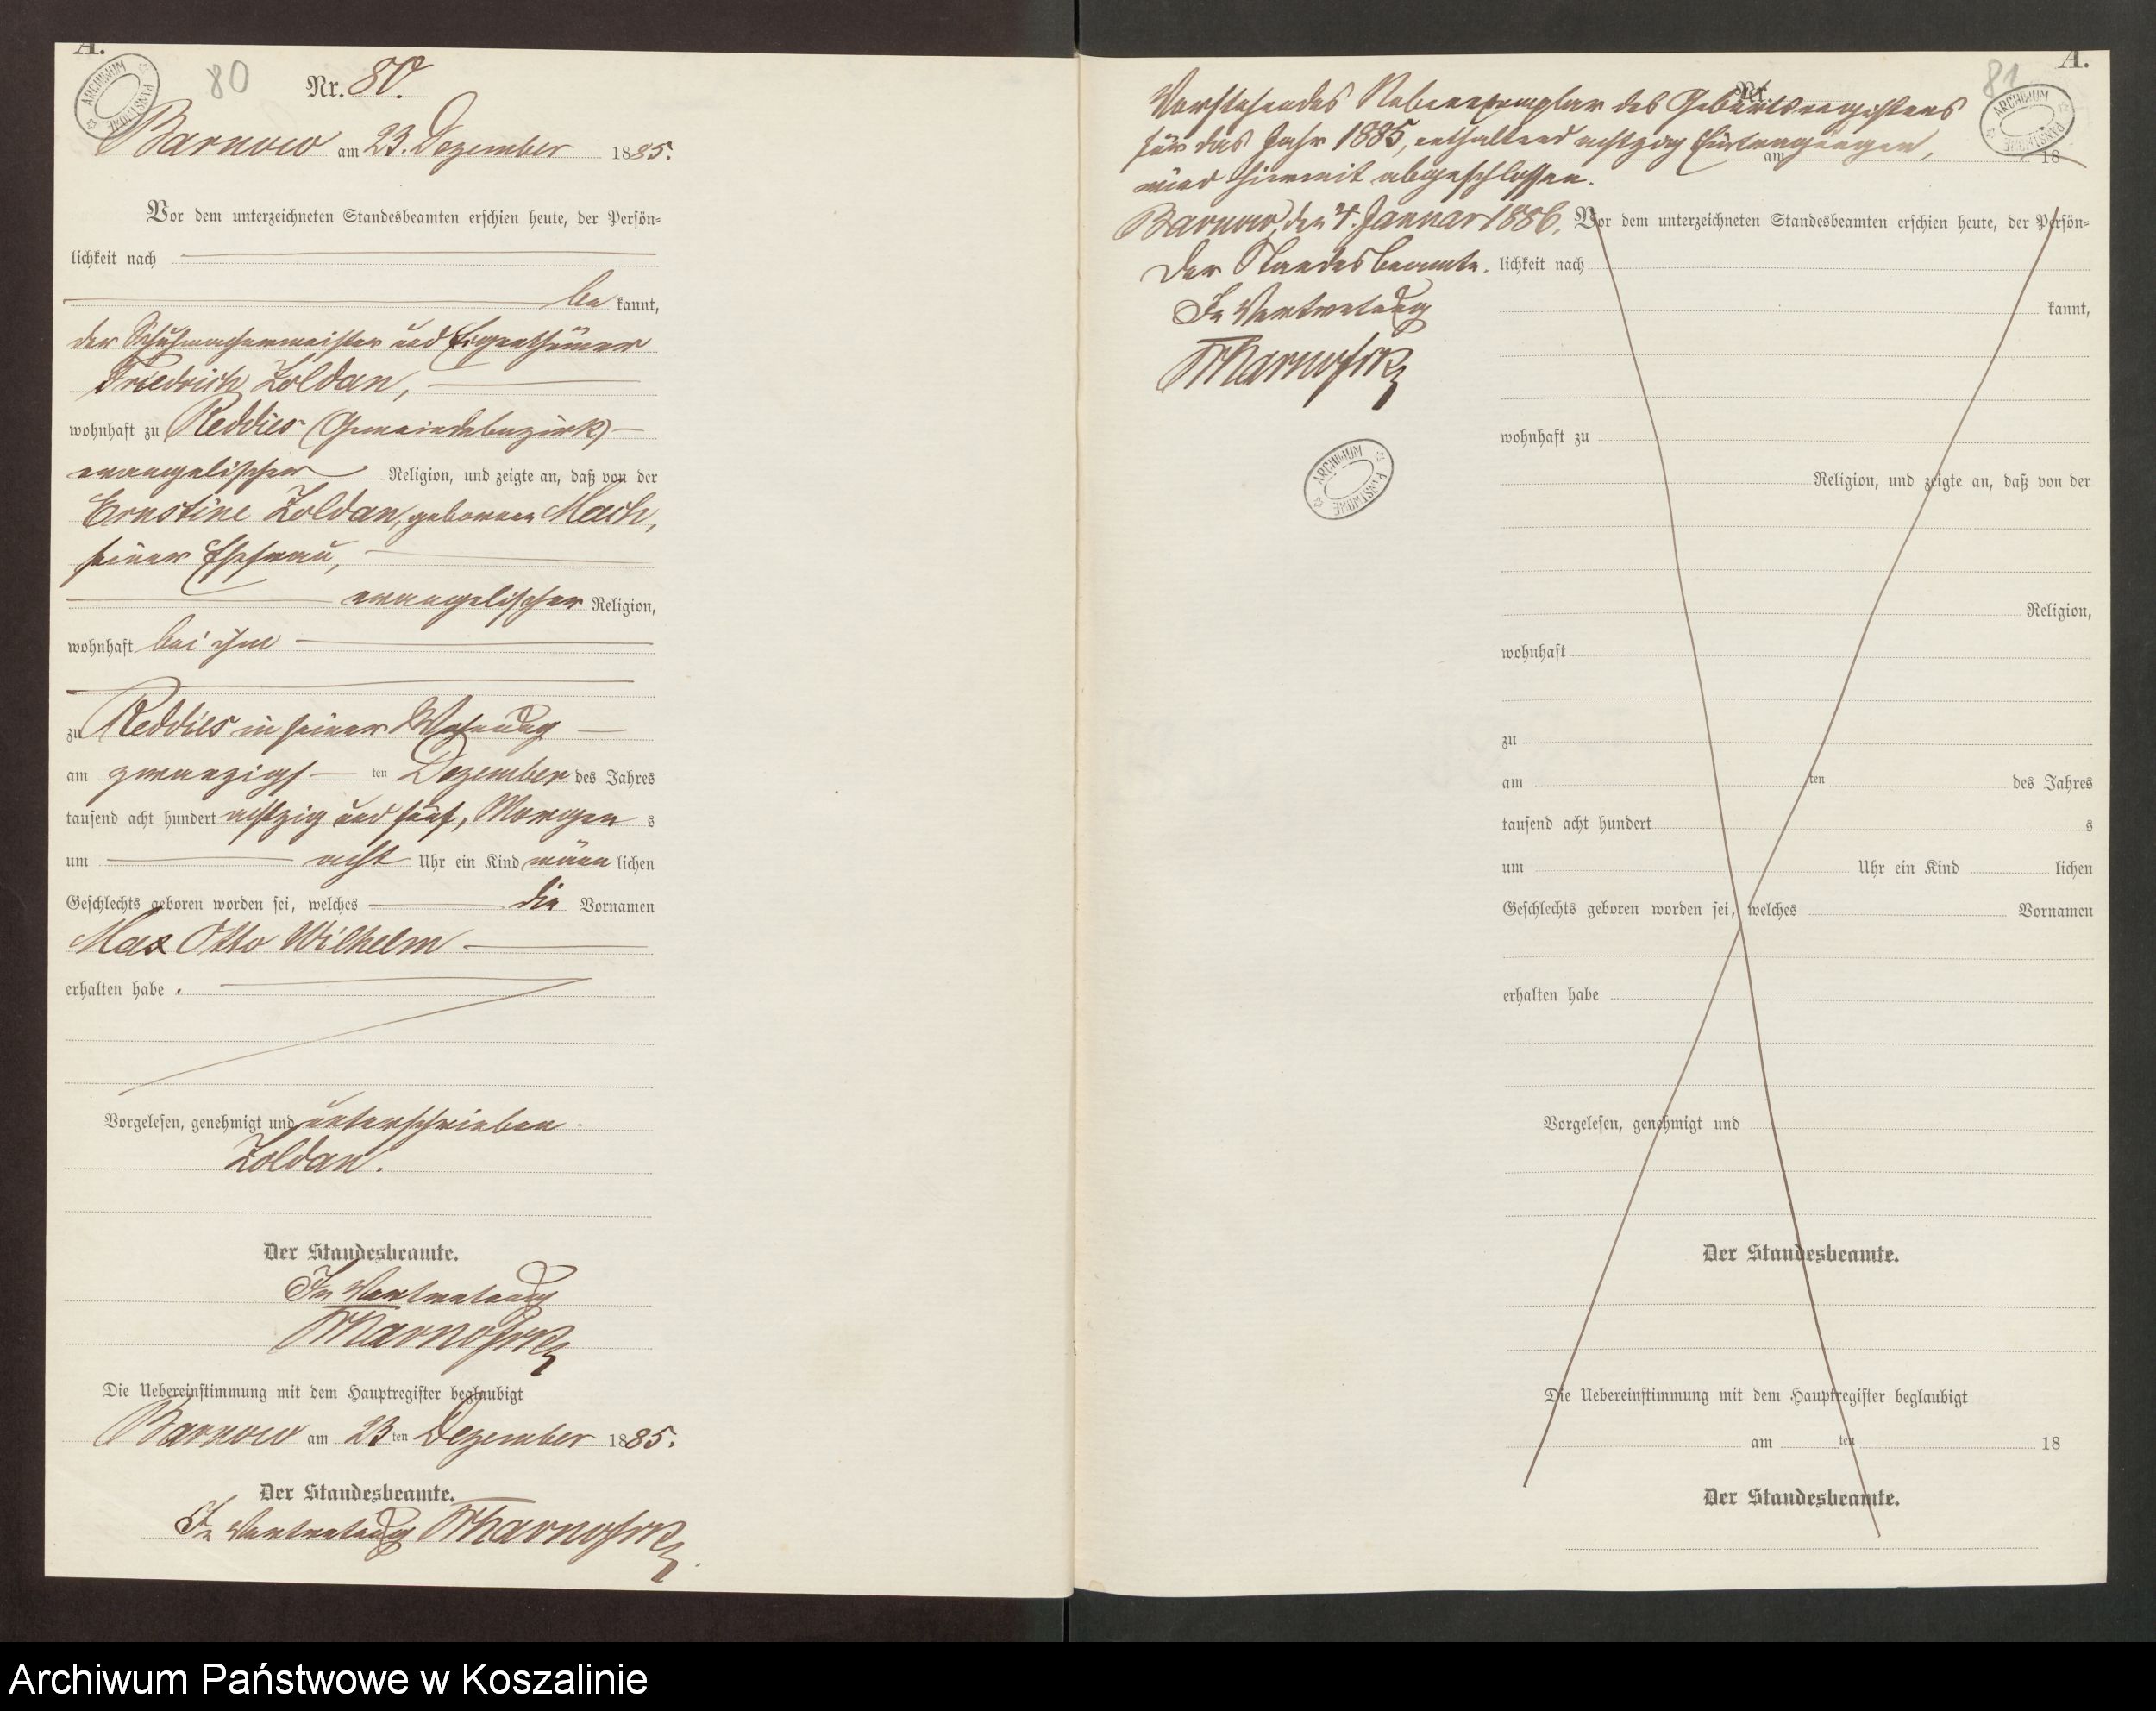 A.
ARCHIWUM PAŃSTWOWE
80
Nr. 80.
Barnow am 23. Dezember 1885.
Vor dem unterzeichneten Standesbeamten erschien heute, der Persön-
lichkeit nach
be kannt,
der Schuhmachermeister und Eigenthümer
Friedrich Zoldan,
wohnhaft zu Reddies (Gemeindebezirk)
evangelischer Religion, und zeigte an, daß von der
Ernstine Zoldan, geborenen Mach,
seiner Ehefrau,
evangelischer Religion,
wohnhaft bei ihm
zu Reddies in seiner Wohnung
am zwanzigs ten Dezember des Jahres
tausend acht hundert achtzig und fünf, Morgen s
um acht Uhr ein Kind männ lichen
Geschlechts geboren worden sei, welches die Vornamen
Max Otto Wilhelm
erhalten habe.
Vorgelesen, genehmigt und unterschrieben.
Zoldan.
Der Standesbeamte.
In Vertretung
Die Uebereinstimmung mit dem Hauptregister beglaubigt
Barnow am 23 ten Dezember 1885.
Der Standesbeamte.
In Vertretung
A.
81
ARCHIWUM PAŃSTWOWE
Nr.
Vorstehendes Nebenexemplar des Geburtsregisters
für das Jahr 1885, enthaltend achtzig Eintragungen,
am 18
wird hiermit abgeschlossen.
Barnow, den 4. Januar 1886.
Der Standesbeamte.
In Vertretung
ARCHIWUM PAŃSTWOWE
Vor dem unterzeichneten Standesbeamten erschien heute, der Persön-
lichkeit nach
kannt,
wohnhaft zu
Religion, und zeigte an, daß von der
Religion,
wohnhaft
zu
am ten des Jahres
tausend acht hundert s
um Uhr ein Kind lichen
Geschlechts geboren worden sei, welches Vornamen
erhalten habe
Vorgelesen, genehmigt und
Der Standesbeamte.
Die Uebereinstimmung mit dem Hauptregister beglaubigt
am ten 18
Der Standesbeamte.
Archiwum Państwowe w Koszalinie